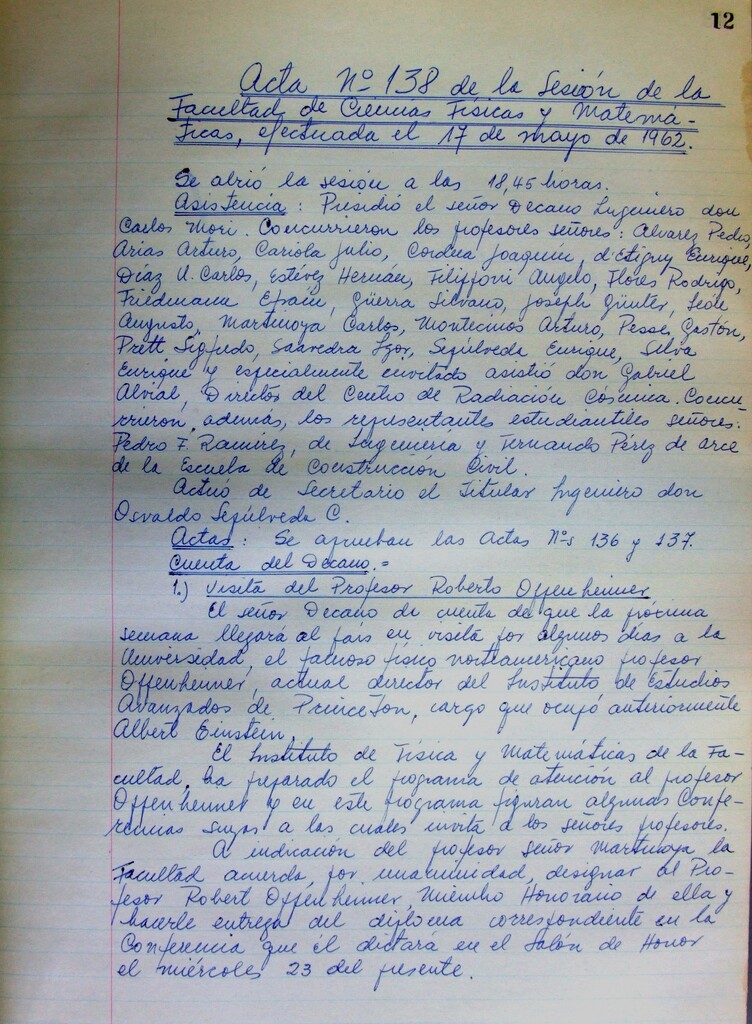 12
Acta Nº 138 de la Sesión de la
Facultad de Ciencias Físicas y Matemá-
ticas, efectuada el 17 de mayo de 1962.
Se abrió la sesión a las 18,45 horas.
Asistencia: Presidió el señor Decano Ingeniero don
Carlos Mori. Concurrieron los profesores señores: Alvarez Pedro,
Arias Arturo, Cariola Julio, Cordua Joaquín, d'Etigny Enrique,
Díaz U. Carlos, Estévez Hernán, Filipponi Angelo, Flores Rodrigo,
Friedmann Efraín, Güerra Silvano, Joseph Günter, León
Augusto, Martinoya Carlos, Montecinos Arturo, Pesse Gastón,
Prett Sigfredo, Saavedra Igor, Sepúlveda Enrique, Silva
Enrique y especialmente invitado asistió don Gabriel
Alvial, Director del Centro de Radiación Cósmica. Concu-
rrieron, además, los representantes estudiantiles señores:
Pedro F. Ramírez, de Ingeniería y Fernando Pérez de Arce
de la Escuela de Construcción Civil.
Actuó de Secretario el Titular Ingeniero don
Osvaldo Sepúlveda C.
Actas: Se aprueban las Actas Nºs 136 y 137.
Cuenta del Decano.=
1.) Visita del Profesor Roberto Oppenheimer
El señor Decano da cuenta de que la próxima
semana llegará al país en visita por algunos días a la
Universidad, el famoso físico norteamericano profesor
Oppenheimer, actual director del Instituto de Estudios
Avanzados de Princeton, cargo que ocupó anteriormente
Albert Einstein.
El Instituto de Física y Matemáticas de la Fa-
cultad, ha preparado el programa de atención al profesor
Oppenheimer y en este programa figuran algunas Confe-
rencias suyas a las cuales invita a los señores profesores.
A indicación del profesor señor Martinoya la
Facultad acuerda, por unanimidad, designar al Pro-
fesor Robert Oppenheimer, Miembro Honorario de ella y
hacerle entrega del diploma correspondiente en la
Conferencia que él dictará en el Salón de Honor
el miércoles 23 del presente.